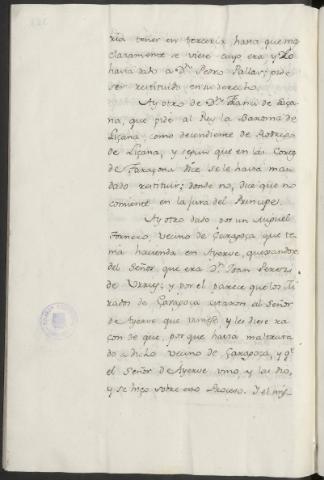 ria tener en terceria hasta que mas
claramente se viere cuyo era y lo
havia dado a Dn. Pedro Pallas; pide
ser restituido en su derecho.
Ay otro de Dn. Remir de Liça-
na, que pide al Rey la Baronia de
Liçana, como descendiente de Rodrigo
de Liçana, y segun que en las Cortes
de Taraçona dice se le havia man-
dado restituir; donde no, dice que no
consiente en la Jura del Principe.
Ay otro dado por un Miguel
Forner, vecino de Çaragoça, que te-
nia hacienda en Ayerve, quexandose
del Señor, que era Dn. Joan Perez
de Urries; y por el parece que los Ju-
rados de Çaragoça citaron al Señor
de Ayerve que viniesse y les diese ra-
çon de que, por que havia maltratado
a dicho vecino de Çaragoça, y qe.
el Señor de Ayerve vino, y las dio,
y se hiço sobre eso Proceso. Y el mis-